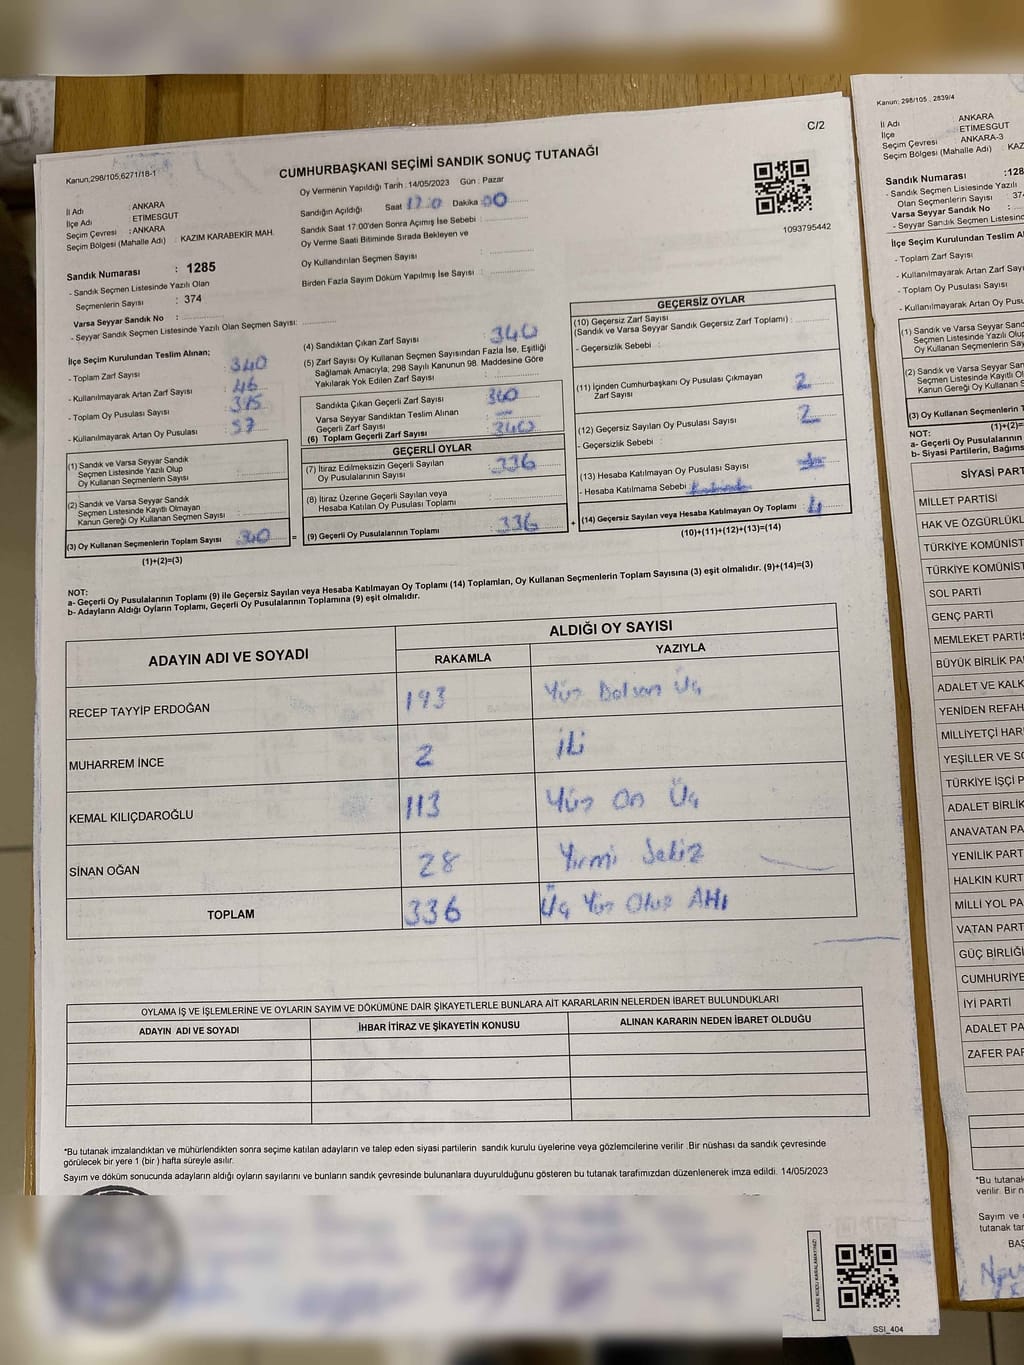 C/2
Kanun:298/105,6271/18-1
CUMHURBAŞKANI SEÇİMİ SANDIK SONUÇ TUTANAĞI
Oy Vermenin Yapıldığı Tarih : 14/05/2023 Gün : Pazar
İl Adı : ANKARA
İlçe Adı : ETIMESGUT
Seçim Çevresi : ANKARA
Seçim Bölgesi (Mahalle Adı) : KAZIM KARABEKİR MAH.
Sandığın Açıldığı Saat 17:0 Dakika 00
Sandık Saat 17:00'den Sonra Açımış İse Sebebi :
Oy Verme Saati Bitiminde Sırada Bekleyen ve
Oy Kullandırılan Seçmen Sayısı :
Birden Fazla Sayım Döküm Yapılmış İse Sayısı :
1093795442
Sandık Numarası : 1285
- Sandık Seçmen Listesinde Yazılı Olan
Seçmenlerin Sayısı : 374
Varsa Seyyar Sandık No :
- Seyyar Sandık Seçmen Listesinde Yazılı Olan Seçmen Sayısı:
İlçe Seçim Kurulundan Teslim Alınan;
- Toplam Zarf Sayısı : 340
- Kullanılmayarak Artan Zarf Sayısı : 46
- Toplam Oy Pusulası Sayısı
- Kullanılmayarak Artan Oy Pusulası :
(1) Sandık ve Varsa Seyyar Sandık
Seçmen Listesinde Yazılı Olup
Oy Kullanan Seçmenlerin Sayısı
(2) Sandık ve Varsa Seyyar Sandık
Seçmen Listesinde Kayıtlı Olmayan
Kanun Gereği Oy Kullanan Seçmen Sayısı
(3) Oy Kullanan Seçmenlerin Toplam Sayısı 340
(1)+(2)=(3)
(4) Sandıktan Çıkan Zarf Sayısı : 340
(5) Zarf Sayısı Oy Kullanan Seçmen Sayısından Fazla İse, Eşitliği
Sağlamak Amacıyla; 298 Sayılı Kanunun 98. Maddesine Göre
Yakılarak Yok Edilen Zarf Sayısı :
Sandıkta Çıkan Geçerli Zarf Sayısı : 340
Varsa Seyyar Sandıktan Teslim Alınan
Geçerli Zarf Sayısı : —
(6) Toplam Geçerli Zarf Sayısı : 340
GEÇERLİ OYLAR
(7) İtiraz Edilmeksizin Geçerli Sayılan
Oy Pusulasının Sayısı : 336
(8) İtiraz Üzerine Geçerli Sayılan veya
Hesaba Katılan Oy Pusulası Toplamı :
= (9) Geçerli Oy Pusulalarının Toplamı : 336
GEÇERSİZ OYLAR
(10) Geçersiz Zarf Sayısı
(Sandık ve Varsa Seyyar Sandık Geçersiz Zarf Toplamı) :
- Geçersizlik Sebebi :
(11) İçinden Cumhurbaşkanı Oy Pusulası Çıkmayan
Zarf Sayısı : 2
(12) Geçersiz Sayılan Oy Pusulası Sayısı : 2
- Geçersizlik Sebebi :
(13) Hesaba Katılmayan Oy Pusulası Sayısı :
- Hesaba Katılmama Sebebi :
+ (14) Geçersiz Sayılan veya Hesaba Katılmayan Oy Toplamı : 4
(10)+(11)+(12)+(13)=(14)
NOT:
a- Geçerli Oy Pusulalarının Toplamı (9) ile Geçersiz Sayılan veya Hesaba Katılmayan Oy Toplamı (14) Toplamları, Oy Kullanan Seçmenlerin Toplam Sayısına (3) eşit olmalıdır. (9)+(14)=(3)
b- Adayların Aldığı Oyların Toplamı, Geçerli Oy Pusulalarının Toplamına (9) eşit olmalıdır.
ADAYIN ADI VE SOYADI
ALDIĞI OY SAYISI
RAKAMLA YAZIYLA
RECEP TAYYİP ERDOĞAN 193 Yüz Doksan Üç
MUHARREM İNCE 2 iki
KEMAL KILIÇDAROĞLU 113 Yüz On Üç
SİNAN OĞAN 28 Yirmi Sekiz
TOPLAM 336 Üç Yüz Otuz Altı
OYLAMA İŞ VE İŞLEMLERİNE VE OYLARIN SAYIM VE DÖKÜMÜNE DAİR ŞİKAYETLERLE BUNLARA AİT KARARLARIN NELERDEN İBARET BULUNDUKLARI
ADAYIN ADI VE SOYADI İHBAR İTİRAZ VE ŞİKAYETİN KONUSU ALINAN KARARIN NEDEN İBARET OLDUĞU
*Bu tutanak imzalandıktan ve mühürlendikten sonra seçime katılan adayların ve talep eden siyasi partilerin sandık kurulu üyelerine veya gözlemcilerine verilir .Bir nüshası da sandık çevresinde
görülecek bir yere 1 (bir ) hafta süreyle asılır.
Sayım ve döküm sonucunda adayların aldığı oyların sayılarını ve bunların sandık çevresinde bulunanlara duyurulduğunu gösteren bu tutanak tarafımızdan düzenlenerek imza edildi. 14/05/2023
KARE KODU KARALAMAYINIZ!
SSI_404
Kanun: 298/105 , 2839/4
İl Adı : ANKARA
İlçe : ETIMESGUT
Seçim Çevresi : ANKARA-3
Seçim Bölgesi (Mahalle Adı) : KAZ
Sandık Numarası :128
- Sandık Seçmen Listesinde Yazılı
Olan Seçmenlerin Sayısı : 37
Varsa Seyyar Sandık No :
- Seyyar Sandık Seçmen Listesind
İlçe Seçim Kurulundan Teslim Al
- Toplam Zarf Sayısı
- Kullanılmayarak Artan Zarf Sayı
- Toplam Oy Pusulası Sayısı
- Kullanılmayarak Artan Oy Pusul
(1) Sandık ve Varsa Seyyar Sand
Seçmen Listesinde Yazılı Olup
Oy Kullanan Seçmenlerin Sayıs
(2) Sandık ve Varsa Seyyar Sand
Seçmen Listesinde Kayıtlı Ol
Kanun Gereği Oy Kullanan S
(3) Oy Kullanan Seçmenlerin T
(1)+(2)=
NOT:
a- Geçerli Oy Pusulalarının
b- Siyasi Partilerin, Bağıms
SİYASİ PART
MİLLET PARTİSİ
HAK VE ÖZGÜRLÜKL
TÜRKİYE KOMÜNİST
TÜRKİYE KOMÜNİST
SOL PARTİ
GENÇ PARTİ
MEMLEKET PARTİS
BÜYÜK BİRLİK PA
ADALET VE KALK
YENİDEN REFAH
MİLLİYETÇİ HAR
YEŞİLLER VE SO
TÜRKİYE İŞÇİ P
ADALET BİRLİK
ANAVATAN PA
YENİLİK PART
HALKIN KURT
MİLLİ YOL PA
VATAN PART
GÜÇ BİRLİĞİ
CUMHURİYE
İYİ PARTİ
ADALET PA
ZAFER PAR
*Bu tutanak
verilir. Bir n
Sayım ve
tutanak tar
BAŞ